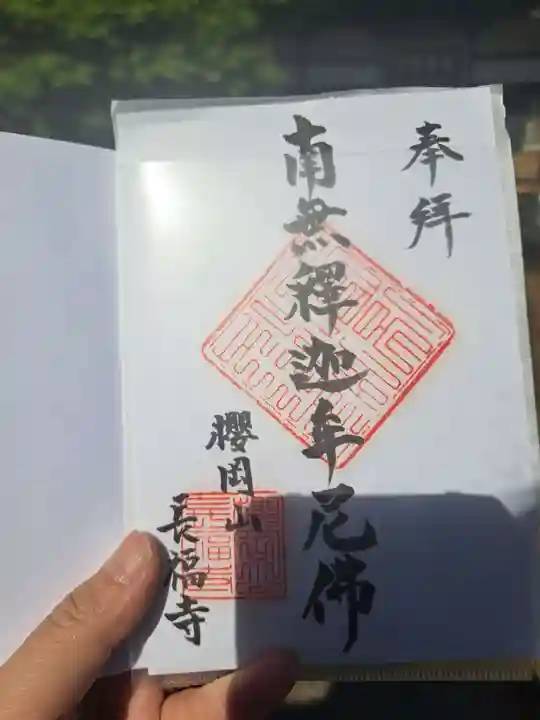 奉拝
南無釋迦牟尼佛
櫻岡山
長福寺